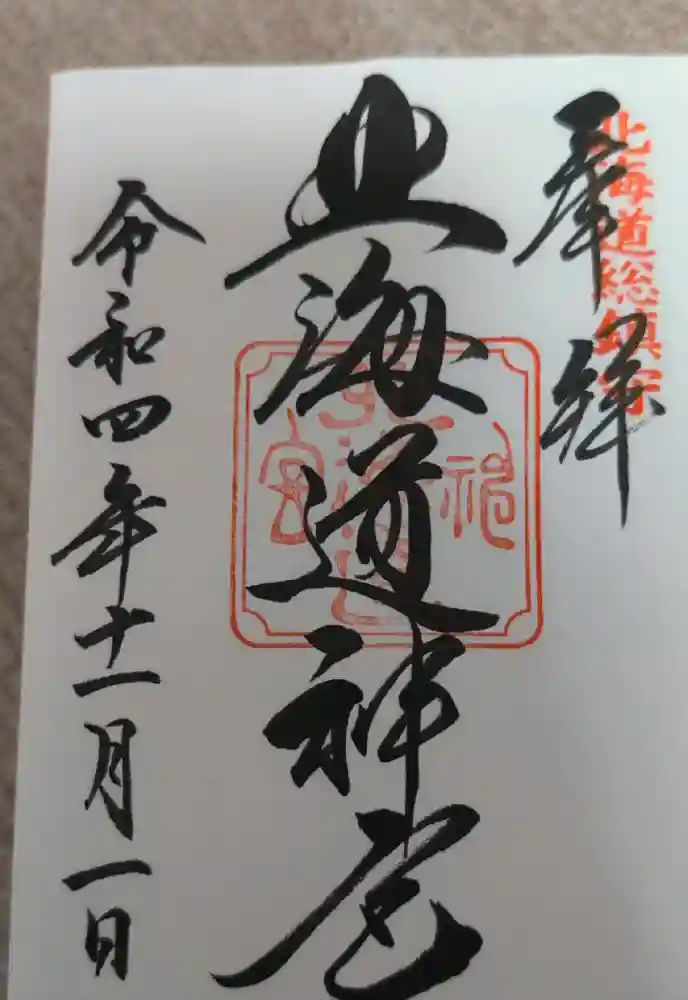 北海道総鎮守
奉拝
北海道神宮
令和四年十一月一日